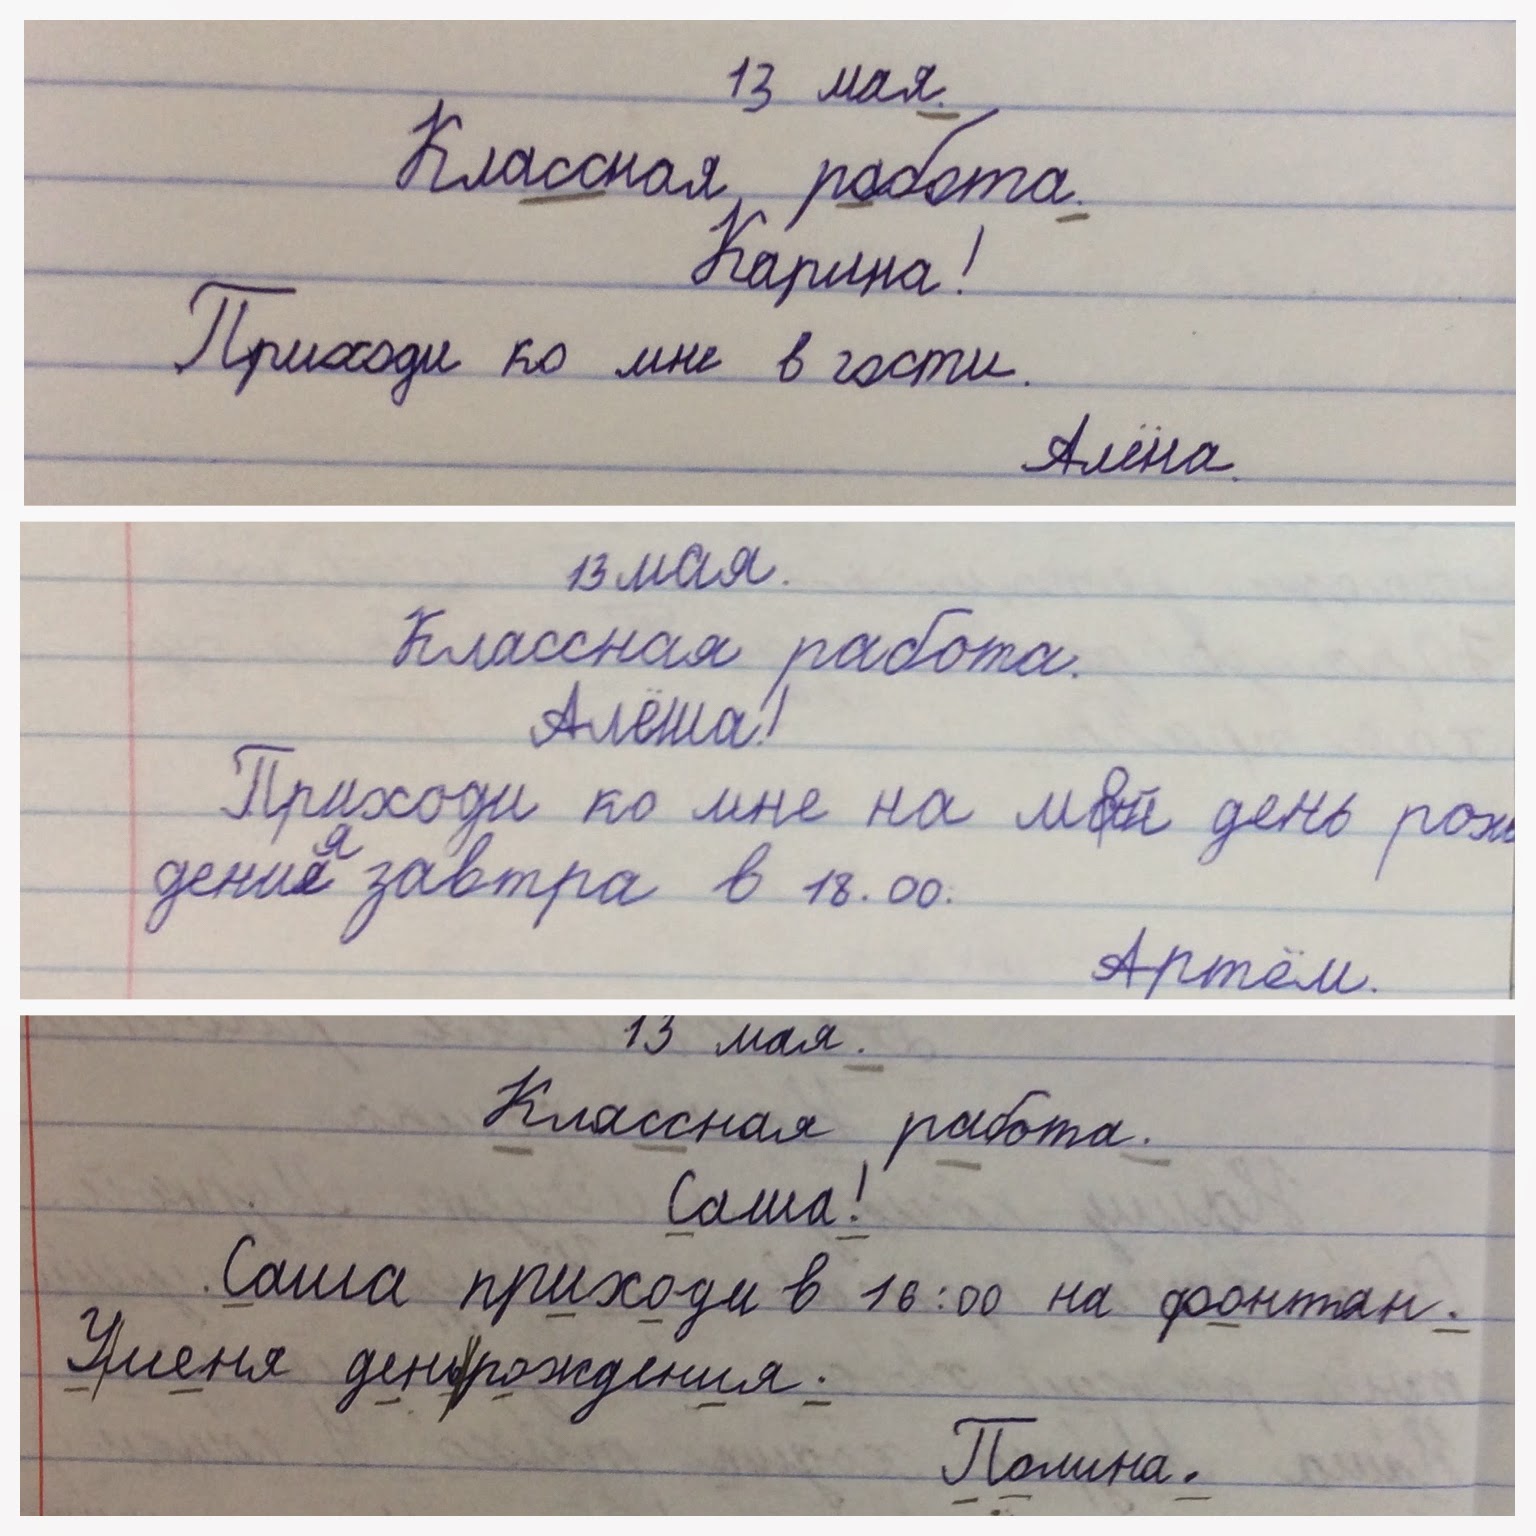 13 мая.
Классная работа.
Карина!
Приходи ко мне в гости.
Алёна.
13 мая.
Классная работа.
Алёша!
Приходи ко мне на мой день рож
дения завтра в 18.00.
Артём.
13 мая.
Классная работа.
Саша!
Саша приходи в 16:00 на фонтан.
У меня день рождения.
Полина.